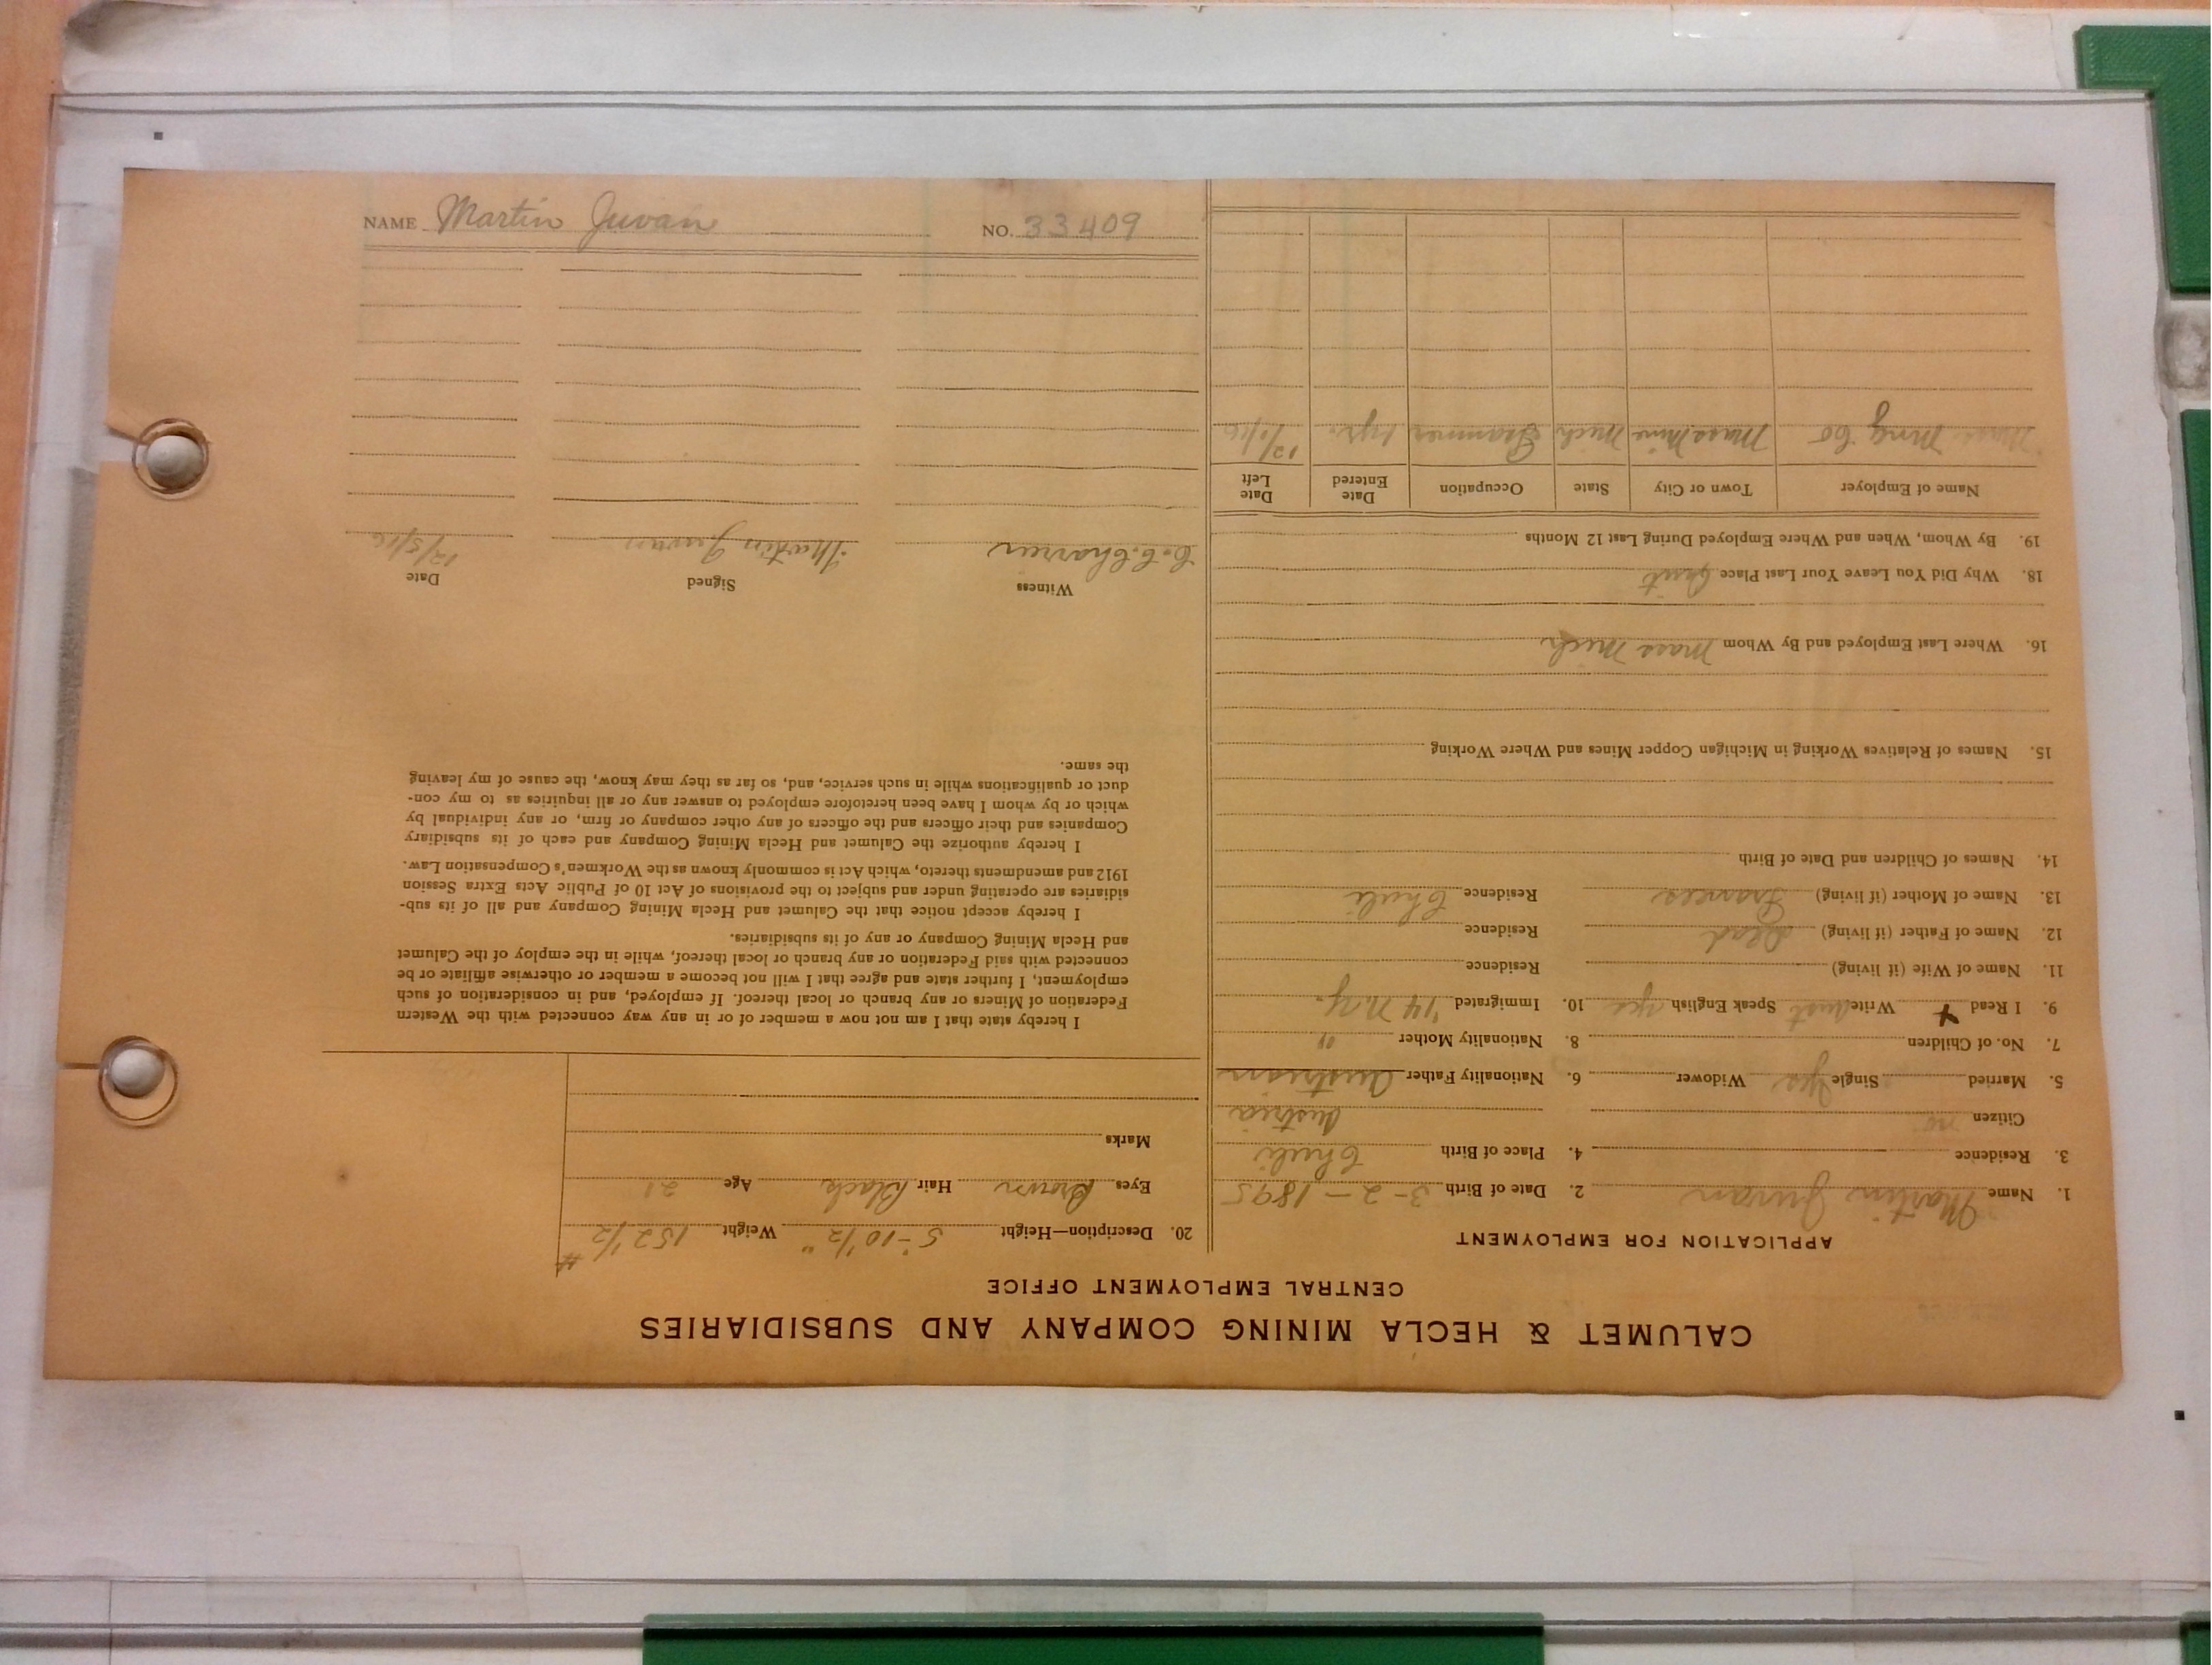 NAME Martin Juvan NO. 33409
CALUMET & HECLA MINING COMPANY AND SUBSIDIARIES
CENTRAL EMPLOYMENT OFFICE
APPLICATION FOR EMPLOYMENT
1. Name Martin Juvan 2. Date of Birth 3-2-1895
3. Residence 4. Place of Birth Chuli
Citizen no Austria
5. Married Single Yes Widower 6. Nationality Father Austrian
7. No. of Children 8. Nationality Mother "
9. I Read Write Aust Speak English yes 10. Immigrated '14 N.Y.
11. Name of Wife (if living) Residence
12. Name of Father (if living) Dead Residence
13. Name of Mother (if living) Frances Residence Chuli
14. Names of Children and Date of Birth
15. Names of Relatives Working in Michigan Copper Mines and Where Working
16. Where Last Employed and By Whom Mass Mich
18. Why Did You Leave Your Last Place Quit
19. By Whom, When and Where Employed During Last 12 Months
Name of Employer Town or City State Occupation Date Entered Date Left
Mass Mng Co Mass Mine Mich Trammer 1 yr. 12/1/16
20. Description—Height 5'-10 1/2" Weight 152 1/2 #
Eyes Brown Hair Black Age 21
Marks
I hereby state that I am not now a member of or in any way connected with the Western
Federation of Miners or any branch or local thereof. If employed, and in consideration of such
employment, I further state and agree that I will not become a member or otherwise affiliate or be
connected with said Federation or any branch or local thereof, while in the employ of the Calumet
and Hecla Mining Company or any of its subsidiaries.
I hereby accept notice that the Calumet and Hecla Mining Company and all of its sub-
sidiaries are operating under and subject to the provisions of Act 10 of Public Acts Extra Session
1912 and amendments thereto, which Act is commonly known as the Workmen's Compensation Law.
I hereby authorize the Calumet and Hecla Mining Company and each of its subsidiary
Companies and their officers and the officers of any other company or firm, or any individual by
which or by whom I have been heretofore employed to answer any or all inquiries as to my con-
duct or qualifications while in such service, and, so far as they may know, the cause of my leaving
the same.
Witness Signed Date
Martin Juvan 12/5/16